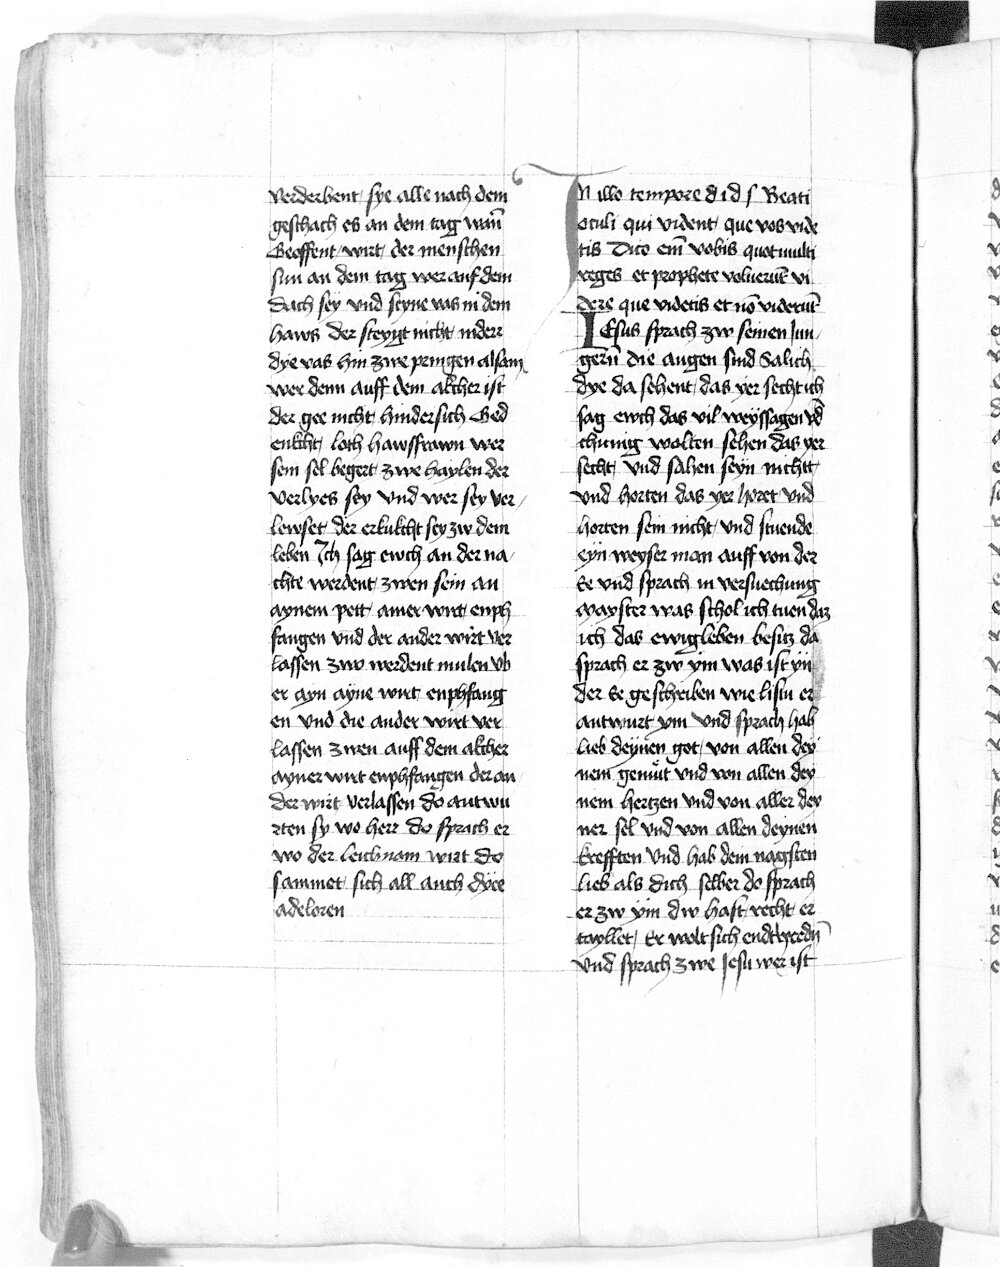 verderbent sye alle nach dem
geschach es an dem tag wan̄
Geoffent wirt der menschen
sun an dem tag wer auf dem
dach sey vnd seyne vas in dem
haws der steygt nicht niderr
dye vas hin zwe pringen alsam
wer denn auff dem akcher ist
der gee nicht hindersich Ged
enkcht loth hawsfrawn wer
sein sel begert zwe haylen der
verlyes sey vnd wer sey ver
lewset der erkukcht sey zw dem
leben Ich sag ewch an der na
chte werdent zwen sein an
aynem pett ainer wirt enph
fangen vnd der ander wirt ver
lassen zwo werdent mulen vb
er ayn ayne wirt enphfang
en vnd die ander wirt ver
lassen zwen auff dem akcher
ayner wirt enphfangen der an
der wirt verlassen do antwu
rten sy wo herr do sprach er
wo der leichnam wirt do
sammet sich all auch dyee
adeloren
In illo tempore d i d s Beati
oculi qui vident que vos vide
tis Dico em̄ vobis quot multi
reges et prophete voluerūt vi
dere que videtis et nō viderūt
IEsus sprach zw seinen Jun
gern̄ die augen sind Salich
dye da sehent das yer secht ich
sag ewch das vil weyssagen vn̄
chunig wolten sehen das yer
secht vnd sahen seyn nichtt
vnd horten das yer horet vnd
horten sein nicht vnd stuende
eyn weyser man auff von der
Ee vnd sprach in versuechung
Mayster was schol ich tuen daz
ich das ewigleben besitz da
sprach er zw ym was ist yn
der Ee geschriben wie listu er
antwurt ym vnd sprach hab
lieb deynen got von allen dey
nem gemüt vnd von allen dey
nem hertzen vnd von aller dey
ner sel vnd von allen deynen
krefften vnd hab dein nagsten
lieb als dich selber do sprach
er zw ym dw hast recht er
tayllet Er wolt sich endtheredn̄
vnd sprach zwe Jesu wer ist